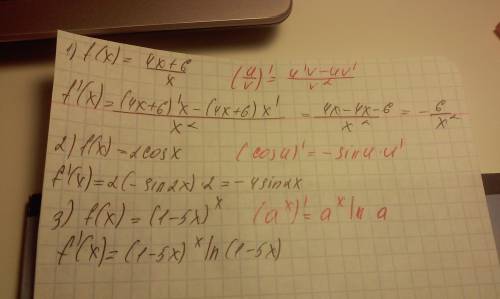 1) f(x) = (4x+6)/x    (u/v)' = (u'v-uv')/v²
f'(x) = ((4x+6)'x-(4x+6)x')/x² = (4x-4x-6)/x² = -6/x²
2) f(x) = 2cosx    (cosu)' = -sinu·u'
f'(x) = 2(-sin2x)2 = -4sin2x
3) f(x) = (1-5x)^x    (a^x)' = a^x ln a
f'(x) = (1-5x)^x ln(1-5x)